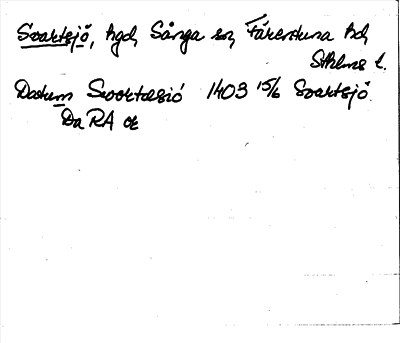 Svartsjö, kgd, Sånga sn, Färentuna hd,
Sthlms l.
Datum Swortasió 1403 15/6 Svartsjö
DaRA or